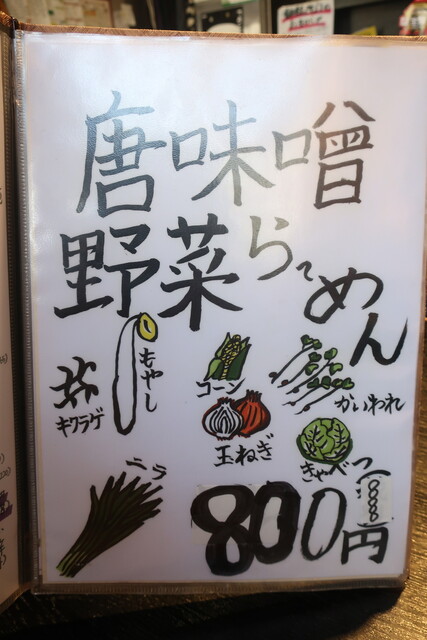 唐味噌
野菜らーめん
キクラゲ
もやし
コーン
かいわれ
玉ねぎ
きゃべつ
ニラ
800円